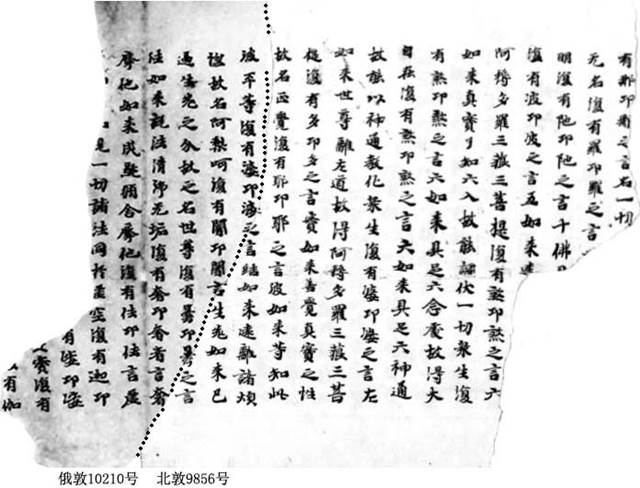 有那印那之言名一切
无名復有羅印羅之言
明復有陁印陁之言十佛
復有波印波之言五如来
阿耨多羅三藐三菩提復有煞印煞之言六
如来真實了知六入故能調伏一切衆生復
有煞印煞之言六如来具足六念處故得大
自在復有煞印煞之言六如来具足六神通
故能以神通教化衆生復有婆印婆之言左
如来世尊離左道故得阿耨多羅三藐三菩
提復有多印多之言實如来善覺真實之性
故名正覺復有耶印耶之言彼如来等知此
彼平等復有婆印婆之言結如来遠離諸煩
惱故名阿梨呵復有闍印闍言生死如来已
過生死之分故之名世尊復有曇印曇之言
法如来說法清淨无垢復有奢印奢者言奢
摩他如来成就願念摩他復有佉印佉言虛
見一切諸法同於虛空復有迦印
有婆印婆
實復有
有伽
俄敦10210号 北敦9856号